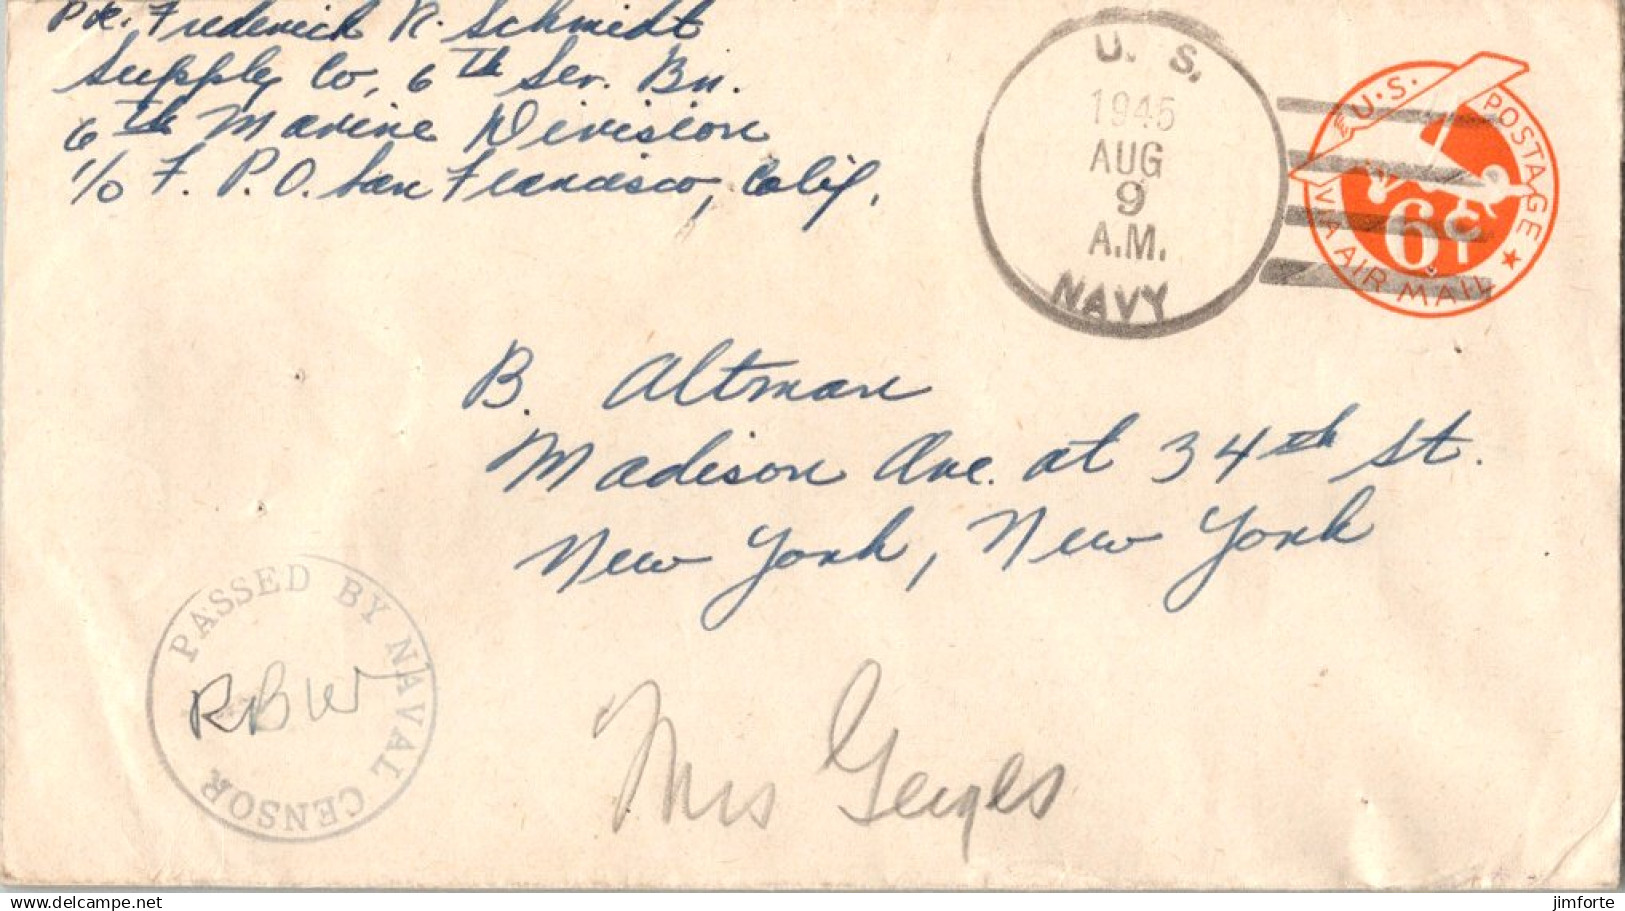 Pvt. Frederick R. Schmidt
Supply Co, 6th Ser. Bn.
6th Marine Division
c/o F. P. O. San Francisco, Calif.
U. S.
1945
AUG
9
A.M.
NAVY
U.S. POSTAGE
6¢
VIA AIR MAIL
B. Altman
Madison Ave. at 34th St.
New York, New York
PASSED BY NAVAL CENSOR
RBW
Mrs
hipstamp.com
jimforte